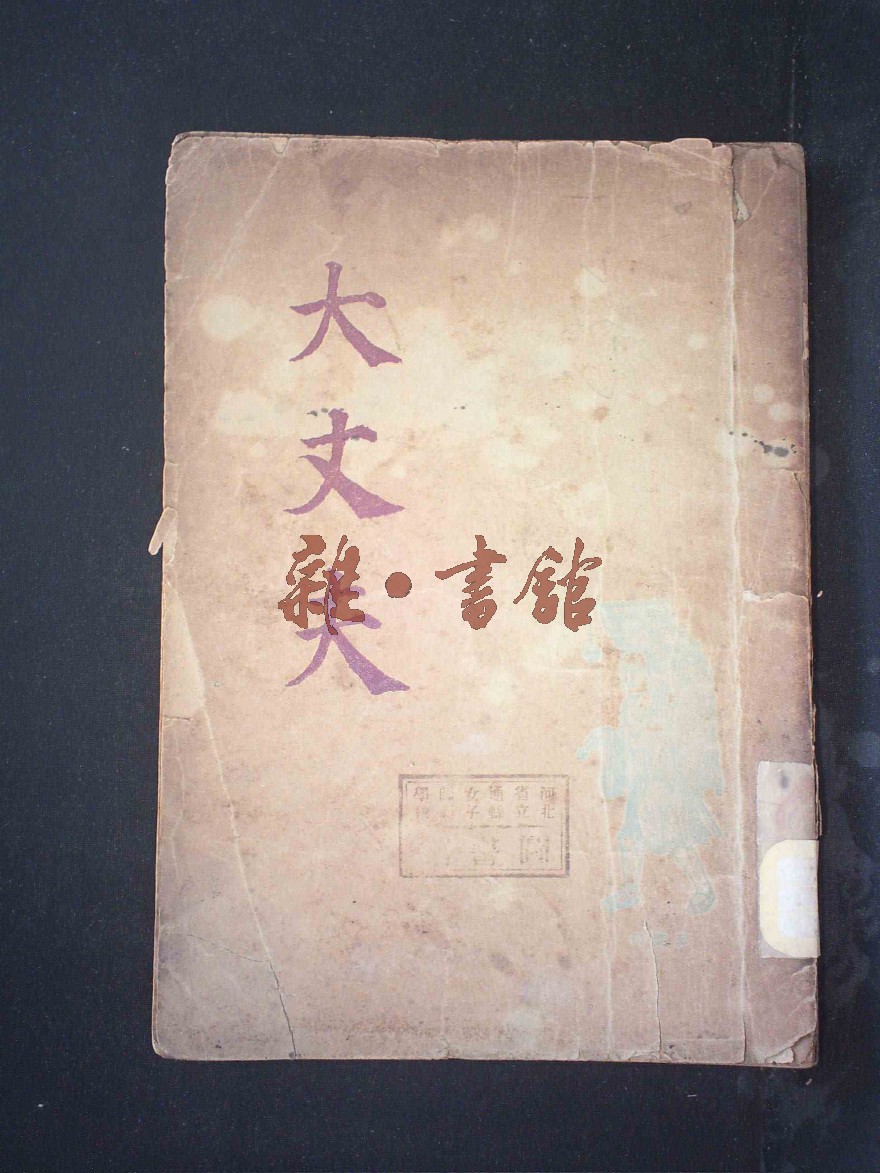 大丈夫
雜·書館
河北
省立
通縣
女子
師範
學校
圖書館